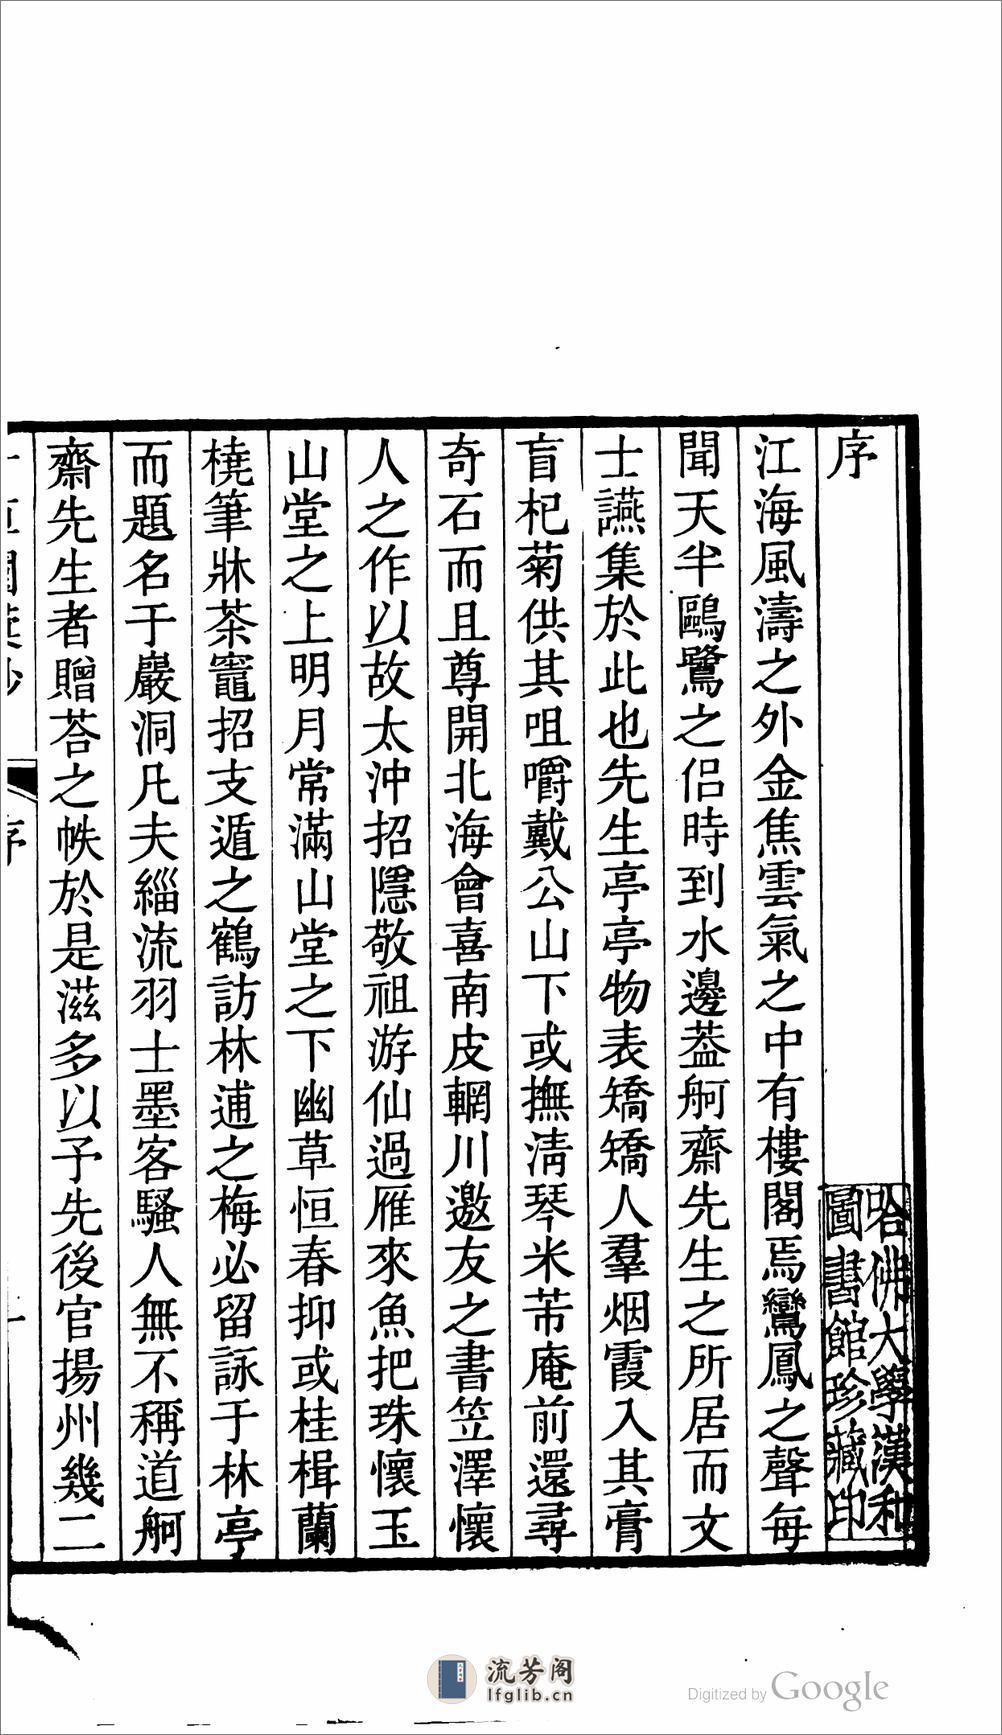 序
江海風濤之外金焦雲氣之中有樓閣焉鸞鳳之聲每
聞天半鷗鷺之侣時到水邊葢舸齋先生之所居而文
士讌集於此也先生亭亭物表矯矯人羣烟霞入其膏
肓杞菊供其咀嚼戴公山下或撫淸琴米芾庵前還尋
奇石而且尊開北海會喜南皮輞川邀友之書笠澤懷
人之作以故太沖招隱敬祖游仙過雁來魚把珠懷玉
山堂之上明月常滿山堂之下幽草恒春抑或桂楫蘭
橈筆牀茶竈招支遁之鶴訪林逋之梅必留詠于林亭
而題名于巖洞凡夫緇流羽士墨客騷人無不稱道舸
齋先生者贈荅之帙於是滋多以予先後官揚州幾二
序
一
哈佛大學漢和
圖書館珍藏印
流芳阁
lfglib.cn
Digitized by Google